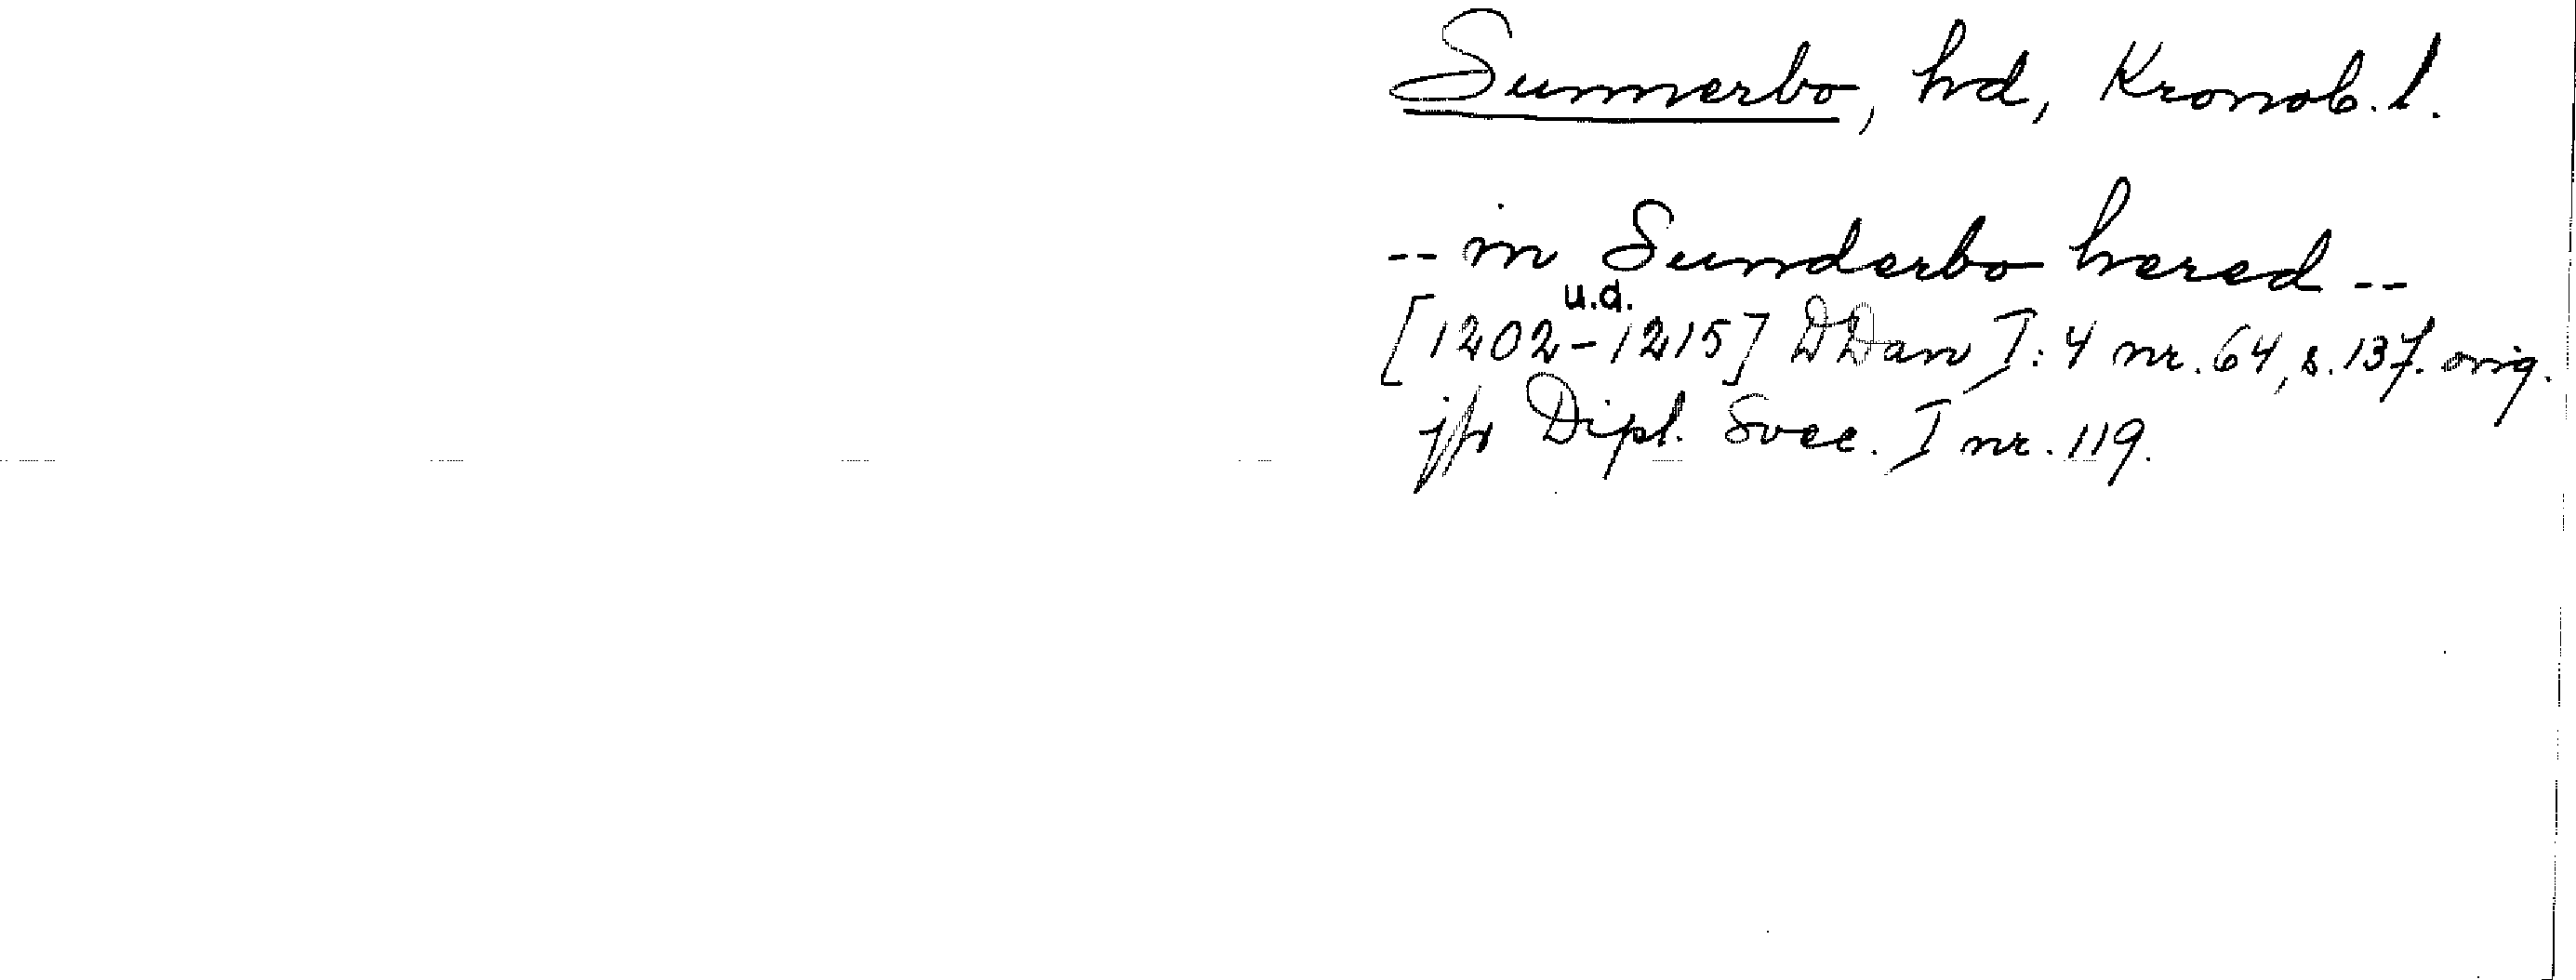 Sunnerbo, hd, Kronob. l.
-- in Sunderbo hered --
u.d.
[1202-1215] DDan I: 4 nr. 64, s. 137. orig.
jfr Dipl. Svec. I nr. 119.